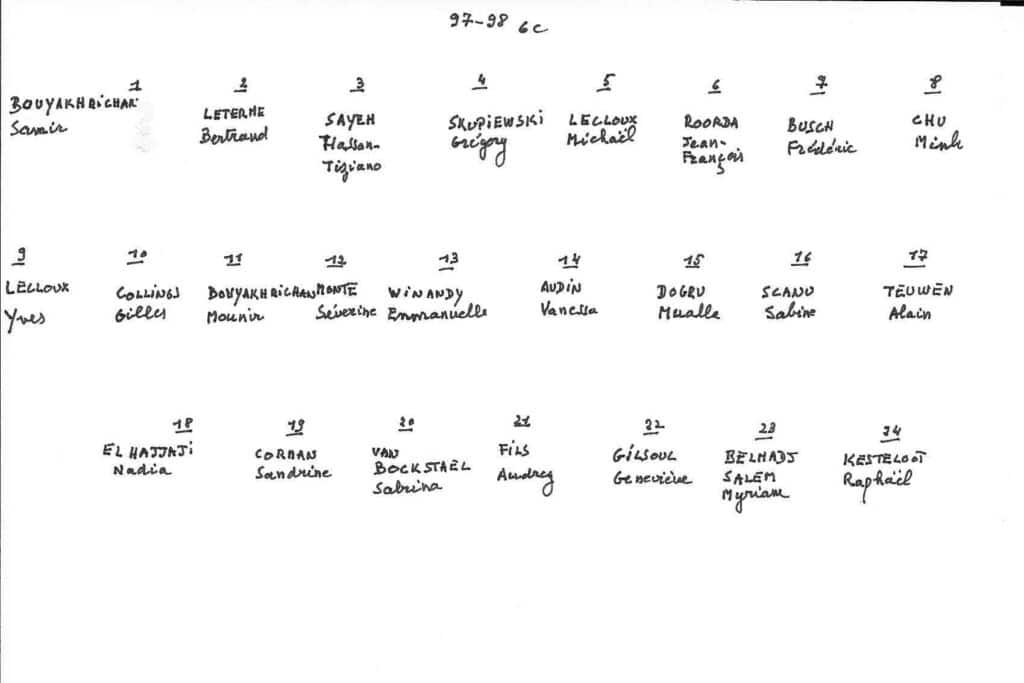 97-98 6C
1 2 3 4 5 6 7 8
BOUYAKHRICHAR LETERME SAYEH SKUPIEWSKI LECLOUX ROORDA BUSCH CHU
Samir Bertrand Hassan- Grégory Michaël Jean- Frédéric Minh
Tiziano François
9 10 11 12 13 14 15 16 17
LECLOUX COLLINGS BOUYAKHRICHAN MONTE WINANDY AUDIN DOGRU SCANU TEUWEN
Yves Gilles Mounir Séverine Emmanuelle Vanessa Mualle Sabine Alain
18 19 20 21 22 23 24
EL HAJJAJi CORMAN VAN FILS GILSOUL BELHADJ KESTELOOT
Nadia Sandrine BOCKSTAEL Audrey Geneviève SALEM Raphaël
Sabrina Myriam